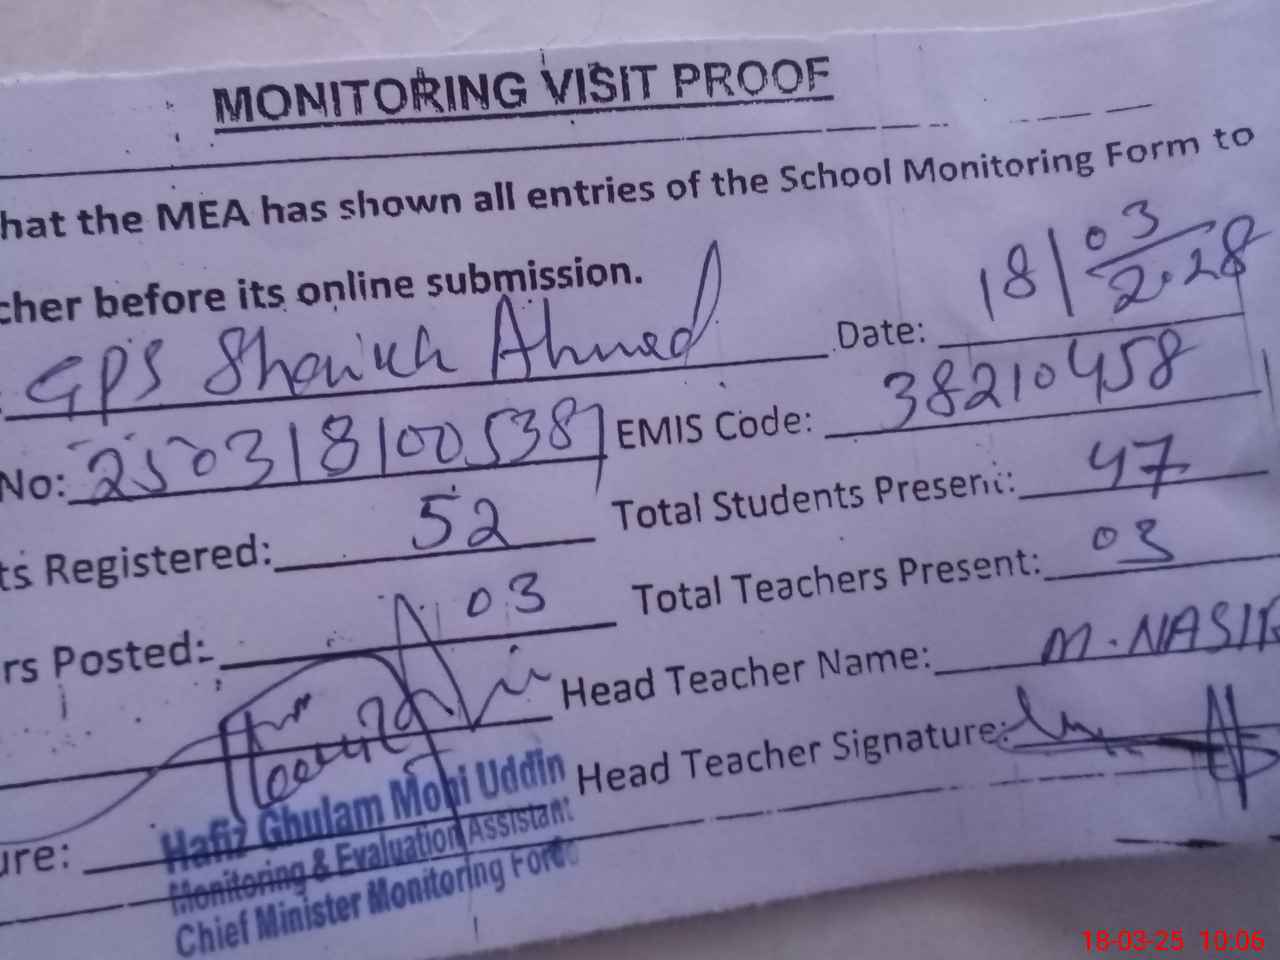 MONITORING VISIT PROOF
hat the MEA has shown all entries of the School Monitoring Form to
cher before its online submission.
GPS Shaikh Ahmed Date: 18/03/2028
No: 2503181005387 EMIS Code: 38210458
ts Registered: 52 Total Students Present: 47
rs Posted: 03 Total Teachers Present: 03
Head Teacher Name: M. NASIR
ure: Head Teacher Signature:
Hafiz Ghulam Mohi Uddin
Monitoring & Evaluation Assistant
Chief Minister Monitoring Force
18-03-25 10:06